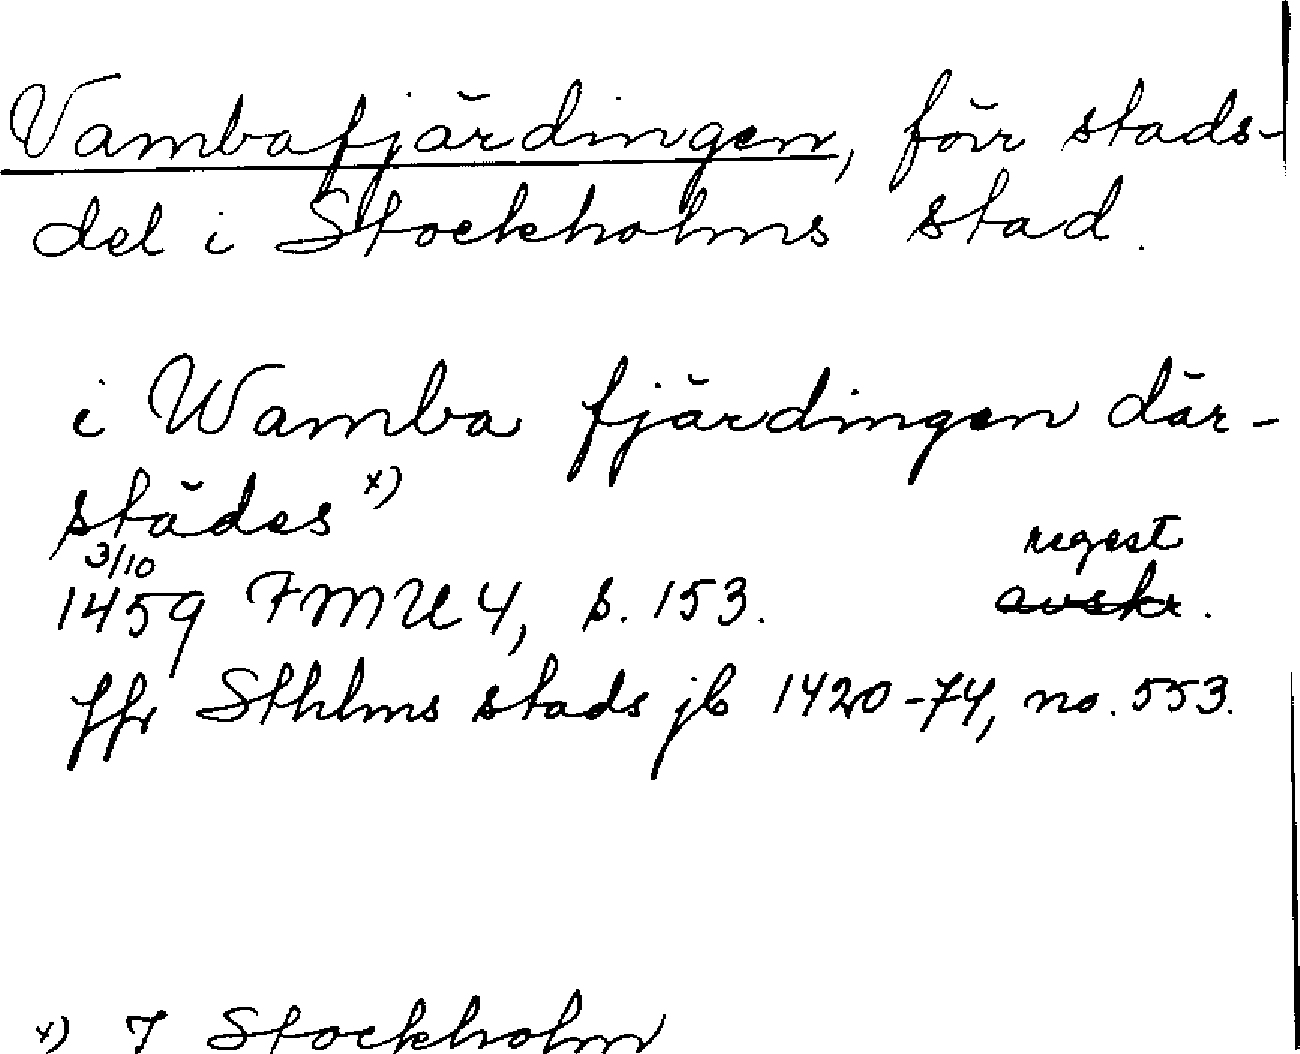 Vambafjärdingen, förr stads-
del i Stockholms stad.
i Wamba fjärdingen där-
städes x)
3/10 regest
1459 FMU 4, s. 153. avskr.
jfr Sthlms stads jb 1420-74, no. 553.
x) I Stockholm